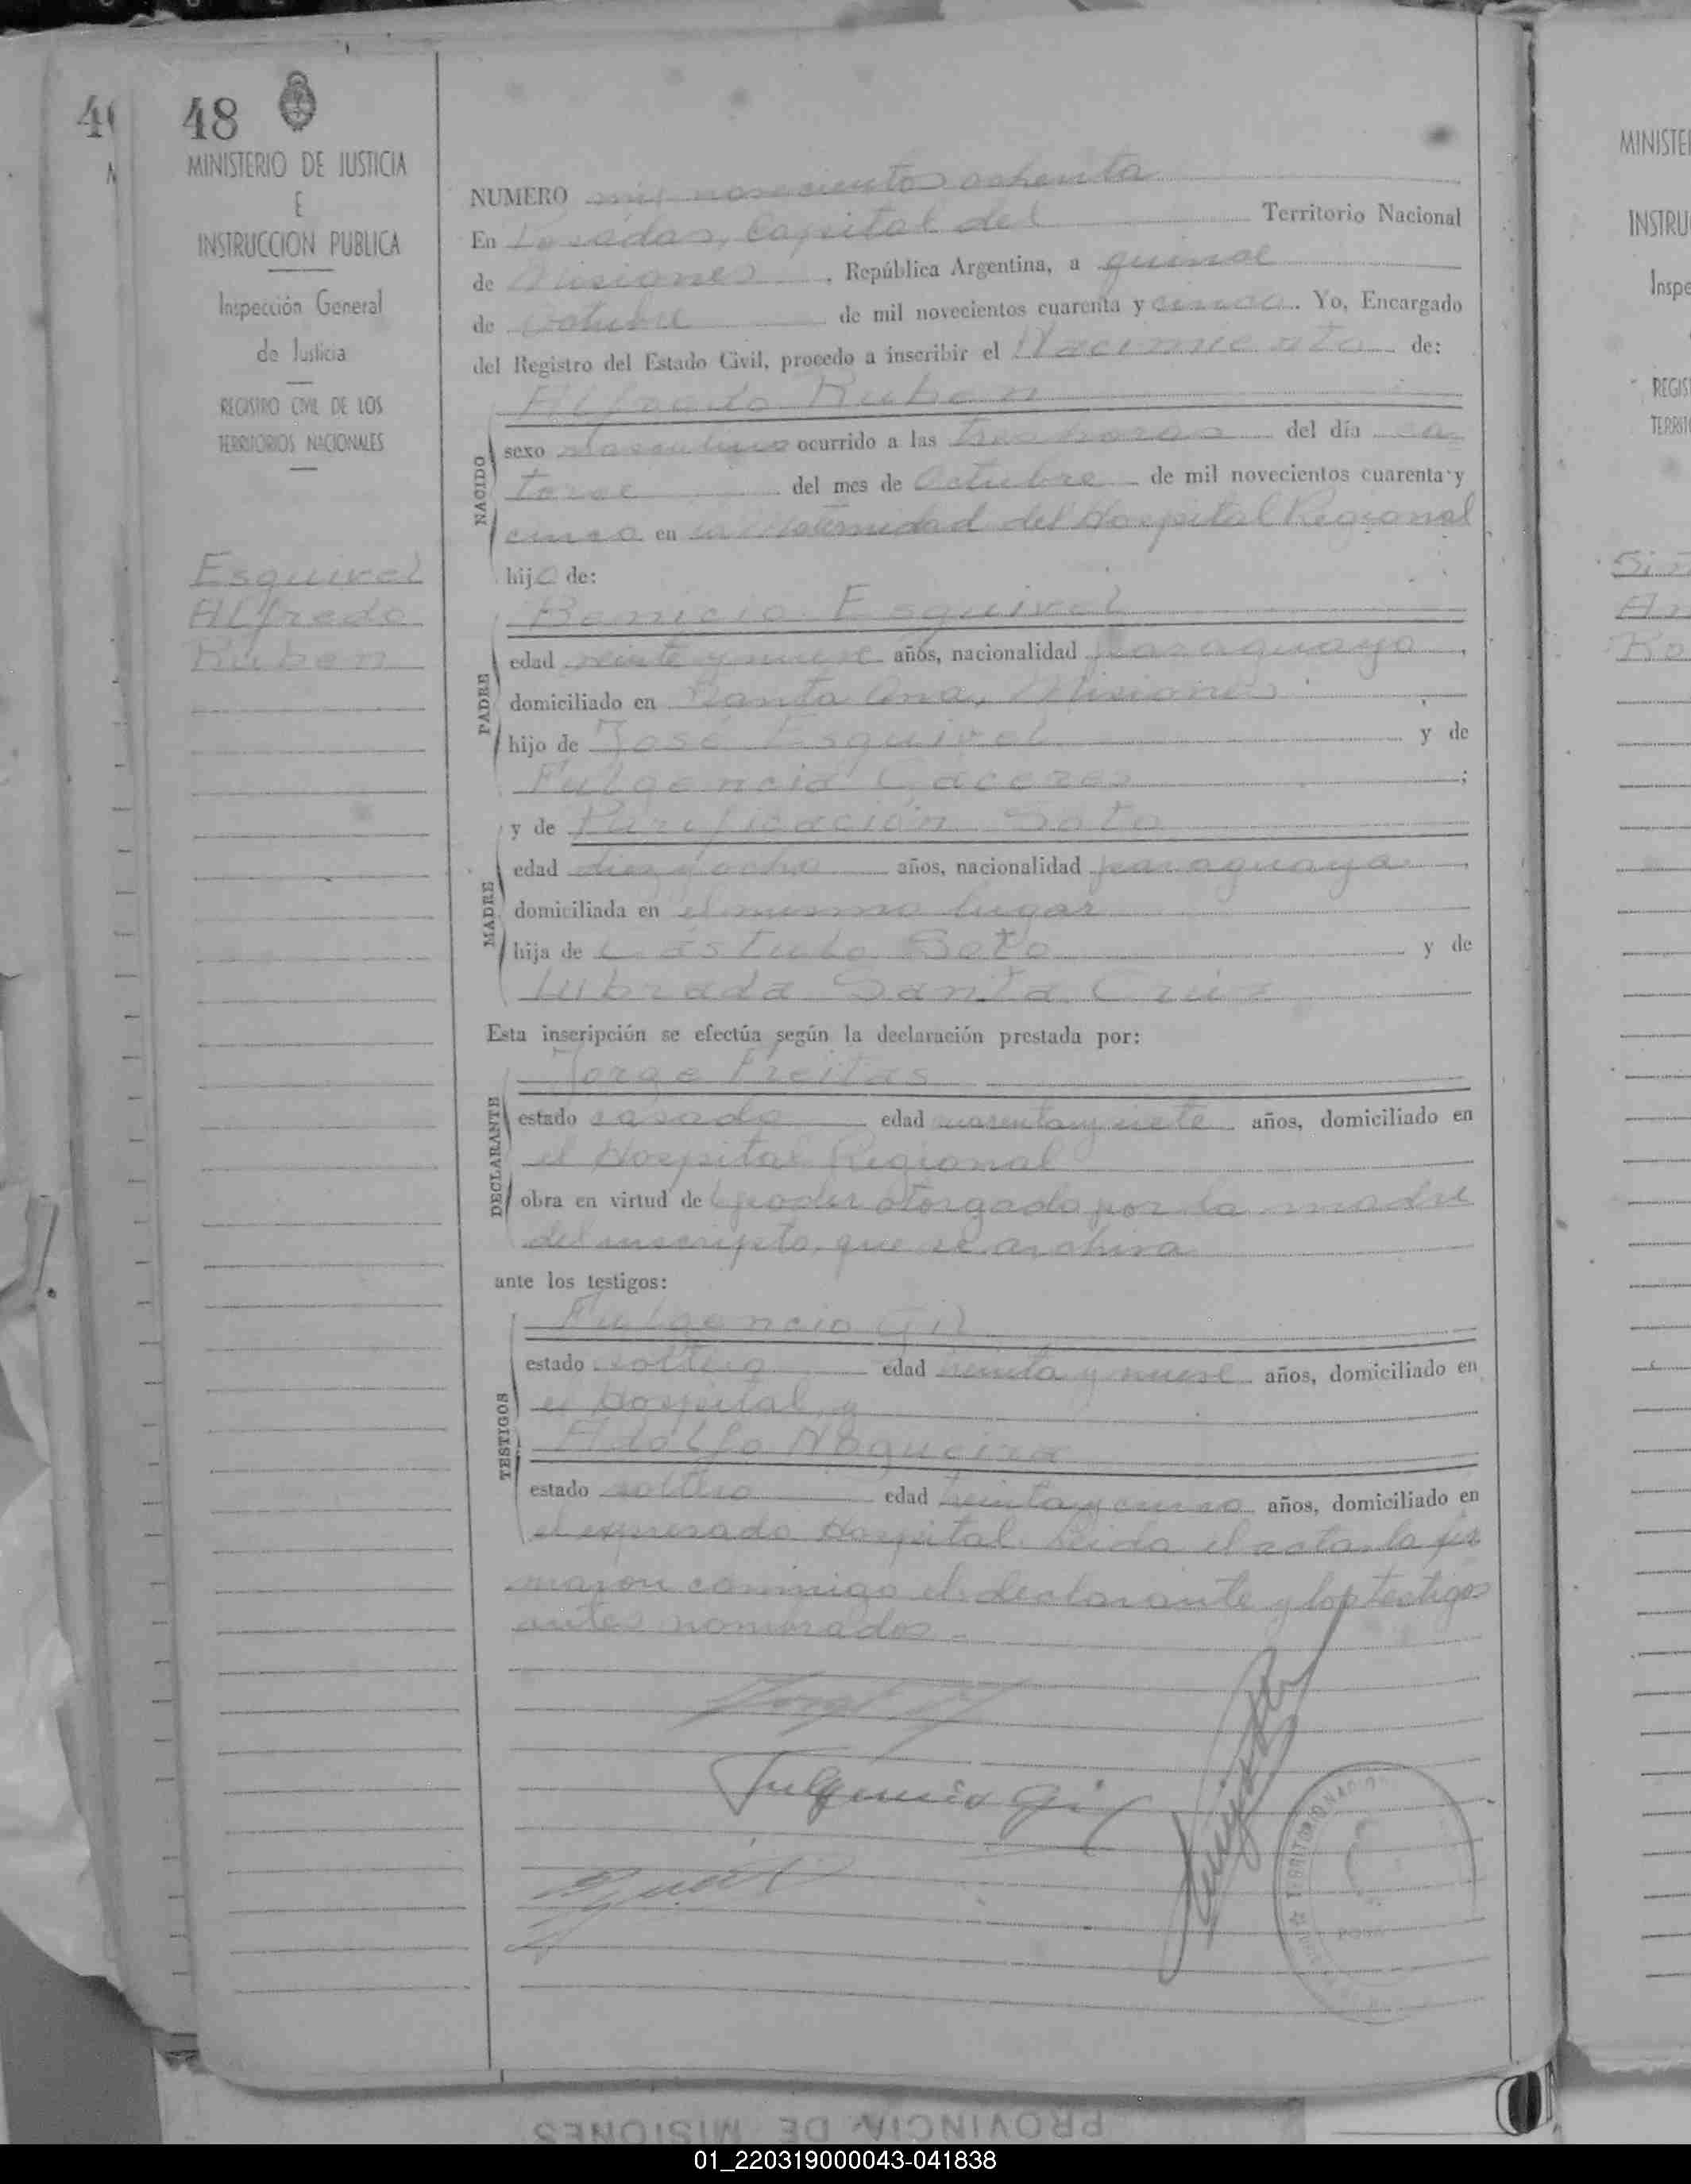 48
MINISTERIO DE JUSTICIA
E
INSTRUCCION PUBLICA
Inspección General
de Justicia
REGISTRO CIVIL DE LOS
TERRITORIOS NACIONALES
Esquivel
Alfredo
Ruben
NUMERO mil novecientos ochenta
En Posadas, Capital del Territorio Nacional
de Misiones, República Argentina, a quince
de Octubre de mil novecientos cuarenta y cinco. Yo, Encargado
del Registro del Estado Civil, procedo a inscribir el Nacimiento de:
NACIDO
Alfredo Ruben
sexo masculino ocurrido a las tres horas del día ca
torce del mes de Octubre de mil novecientos cuarenta y
cinco en la Maternidad del Hospital Regional
hijo de:
PADRE
Benicio Esquivel
edad veinte y nueve años, nacionalidad paraguaya,
domiciliado en Santa Ana, Misiones
hijo de José Esquivel y de
Fulgencia Caceres;
MADRE
y de Purificación Soto
edad diez y ocho años, nacionalidad paraguaya,
domiciliada en el mismo lugar
hija de Cástulo Soto y de
Lubrada Santa Cruz
Esta inscripción se efectúa según la declaración prestada por:
DECLARANTE
Jorge Freitas
estado casado edad cuarenta y siete años, domiciliado en
el Hospital Regional
obra en virtud de poder otorgado por la madre
del inscripto, que se archiva
ante los testigos:
TESTIGOS
Fulgencio Gil
estado soltero edad treinta y nueve años, domiciliado en
el Hospital, y
Adolfo Nogueira
estado soltero edad treinta y cinco años, domiciliado en
el expresado Hospital. Leida el acta, la fir
maron conmigo el declarante y los testigos
antes nombrados.
Fulgencio Gil
TERRITORIO NACIO
POSA
MINISTE
INSTRU
Inspe
REGIS
TERRIT
PROVINCIA DE MISIONES
01_220319000043-041838